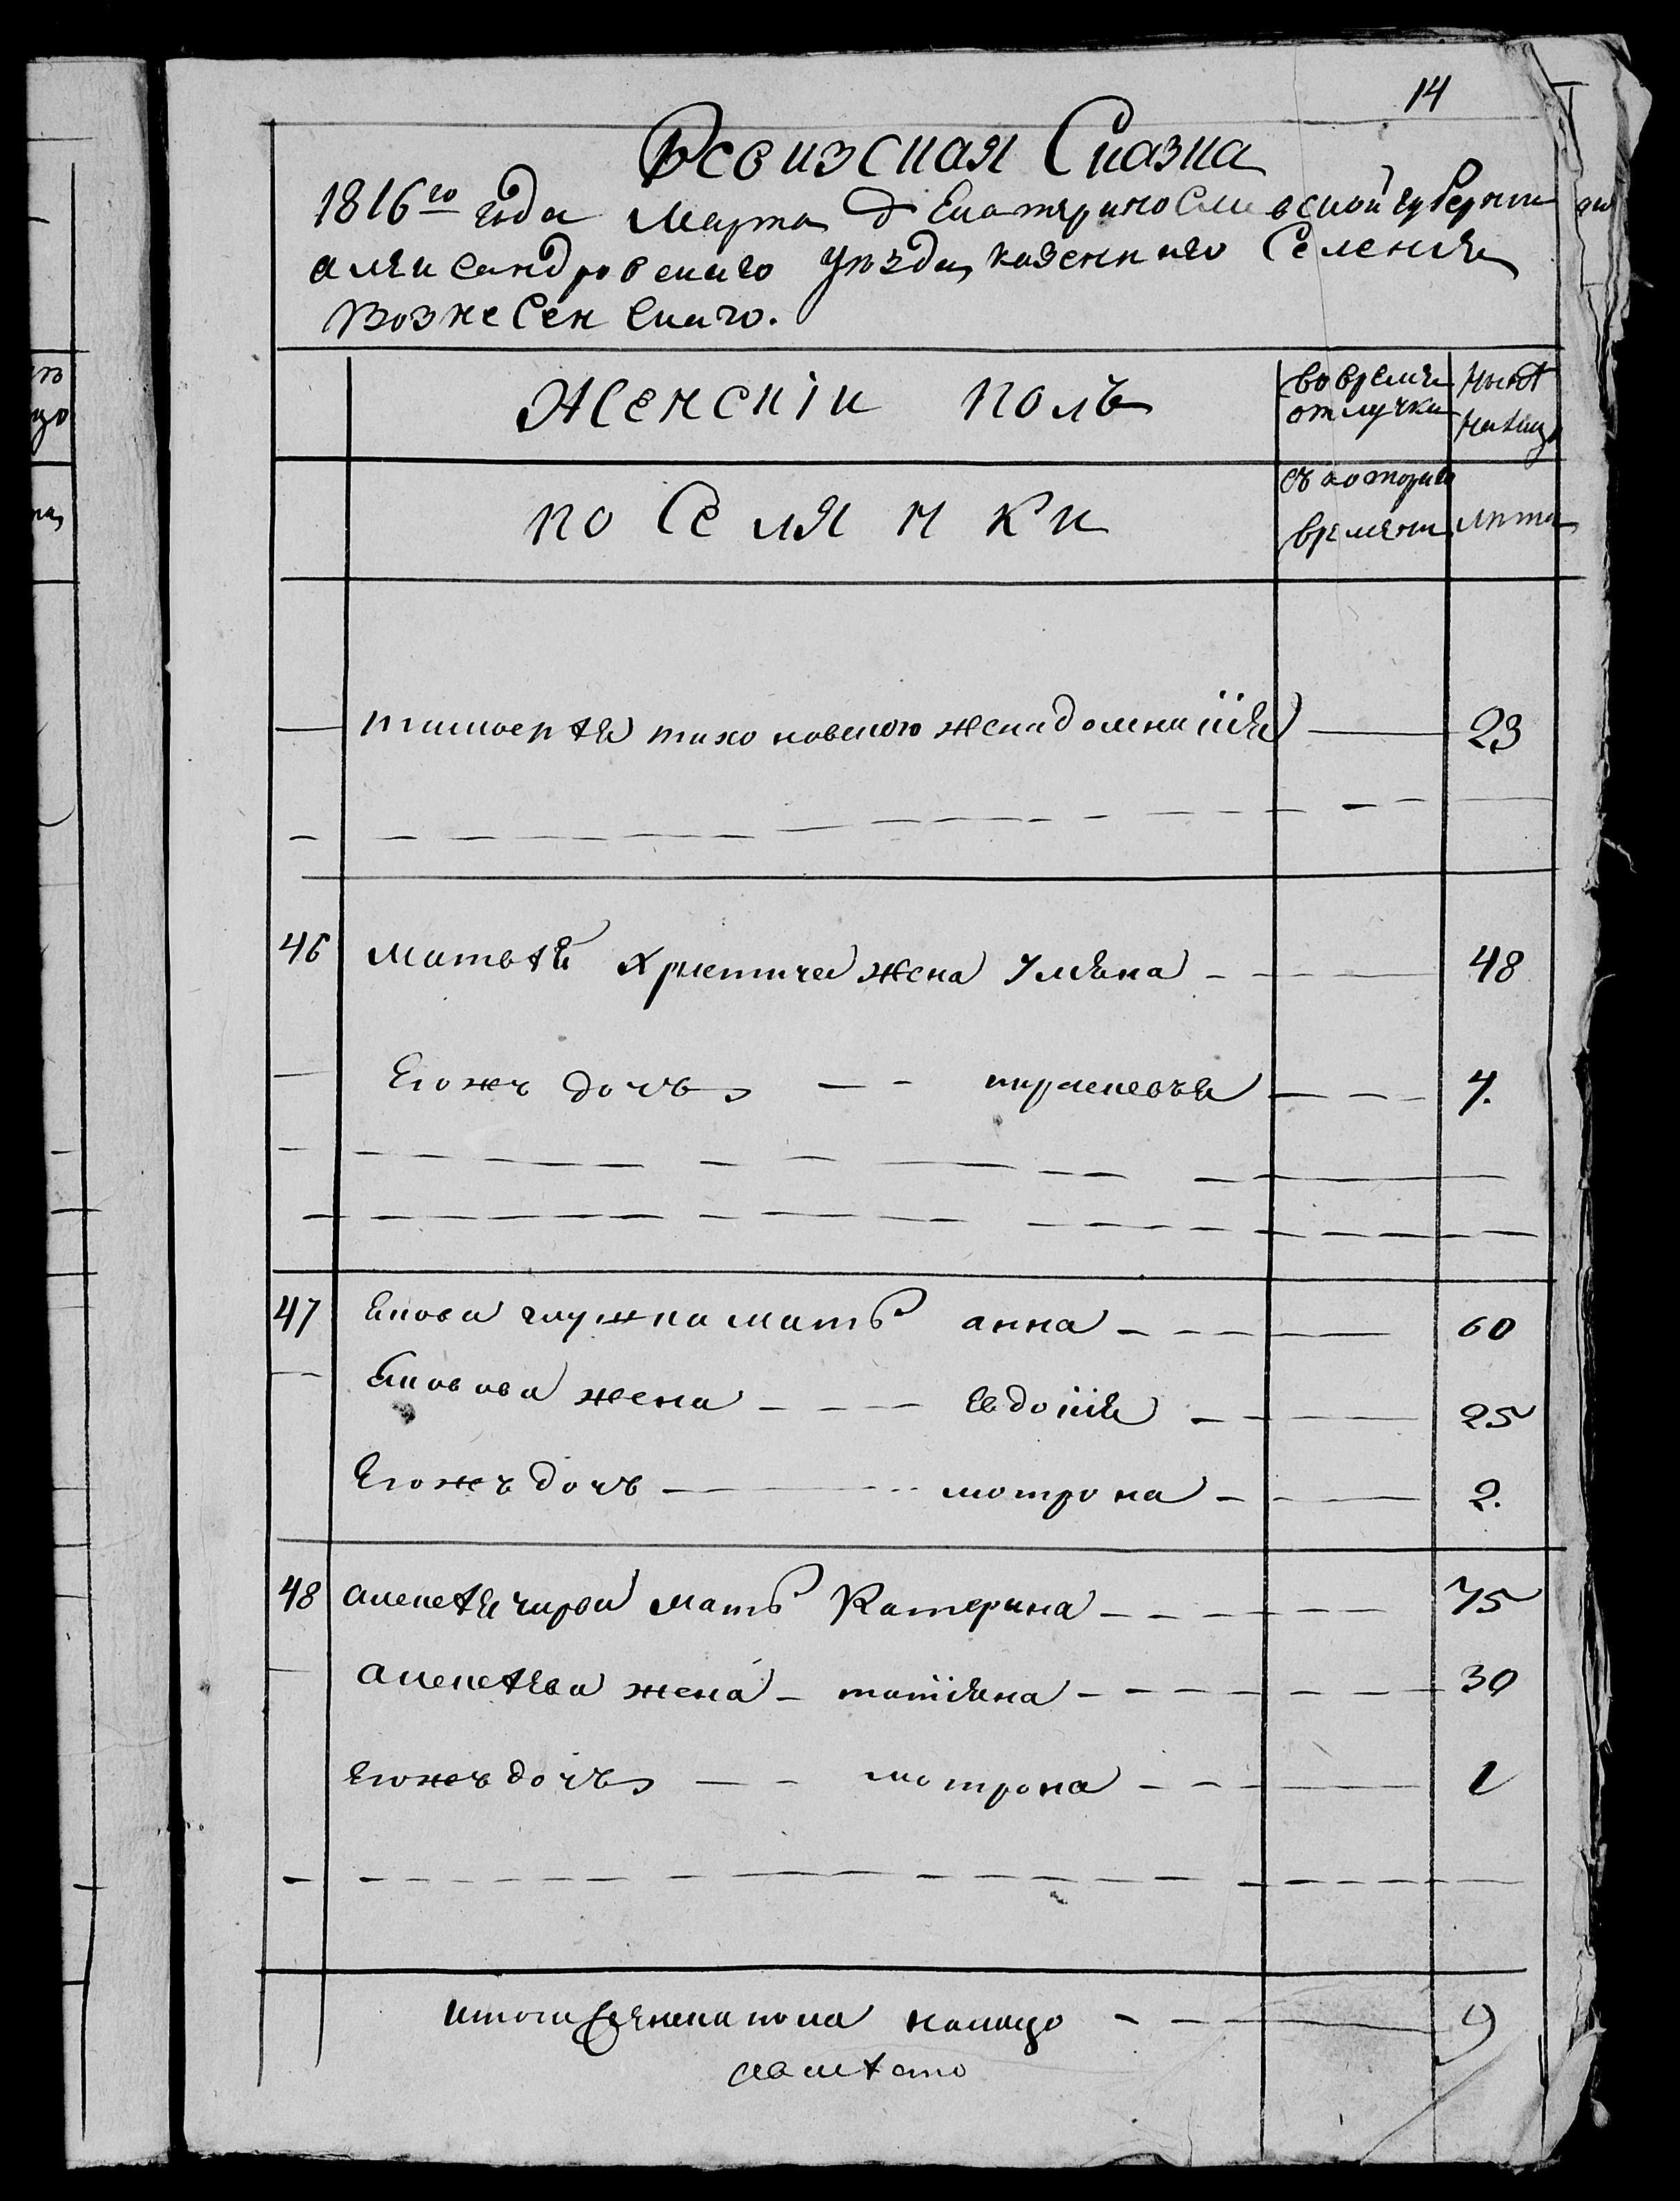 14
Ревизская Сказка
1816го года Марта д Екатяринославской губернии
аляксандровскаго уѣзда, казеннаго Селения
вознесенскаго.
Женскiй полъ
во время отлучки
нынѣ налицо
поселянки
съ котораго времяни
лѣта
тихоновскаго жена домникiя 23
46 матвѣй жена Уляна 48
Егожъ дочь парасковья 4.
47 глушка мать анна 60
жена Евдокiя 25
Егожъ дочь мотрона 2.
48 алексѣя мать Катерина 75
алексѣева жена татiяна 30
Егожъ дочь мотрона 1
итого женска пола налицо 9